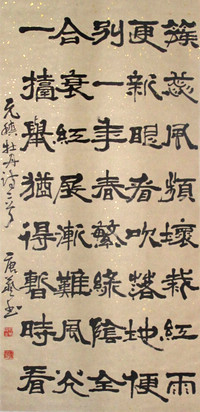 簇蕊風頻壞裁紅雨
更新眼看吹落地便
別一年春繁綠陰全
合衰紅展漸難風光
一擡舉猶得暫時看
元稹牡丹詩二首